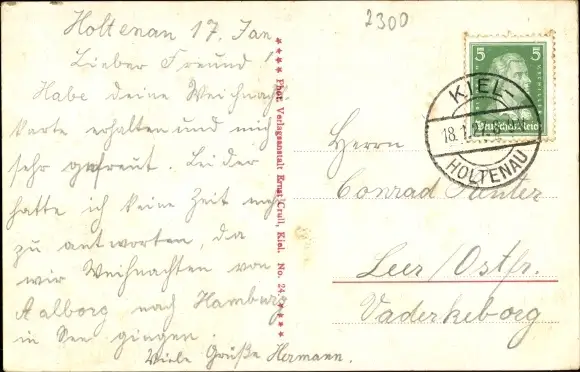 Holtenau 17. Jan.
Lieber Freund!
Habe deine Weihnachts
karte erhalten und mich
sehr gefreut. Leider
hatte ich keine Zeit
zu antworten, da
wir Weihnachten von
Aalborg nach Hamburg
in See gingen.
Viele Grüße Hermann.
★★★★ Phot. Verlagsanstalt Ernst Crull, Kiel. No. 24 ★★★★
2300
5 5
Deutsches Reich
KIEL-
18.1.27.
HOLTENAU
Herrn
Conrad
Leer/Ostfr.
Vaderkeborg